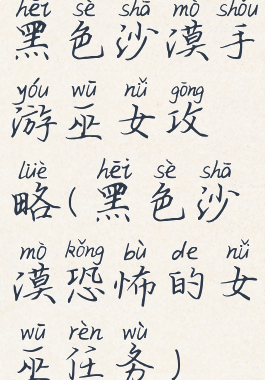 hēi sè shā mò shǒu
黑色沙漠手
yóu wū nǚ gōng
游巫女攻
lüè hēi sè shā
略(黑色沙
mò kǒng bù de nǚ
漠恐怖的女
wū rèn wù
巫任务)